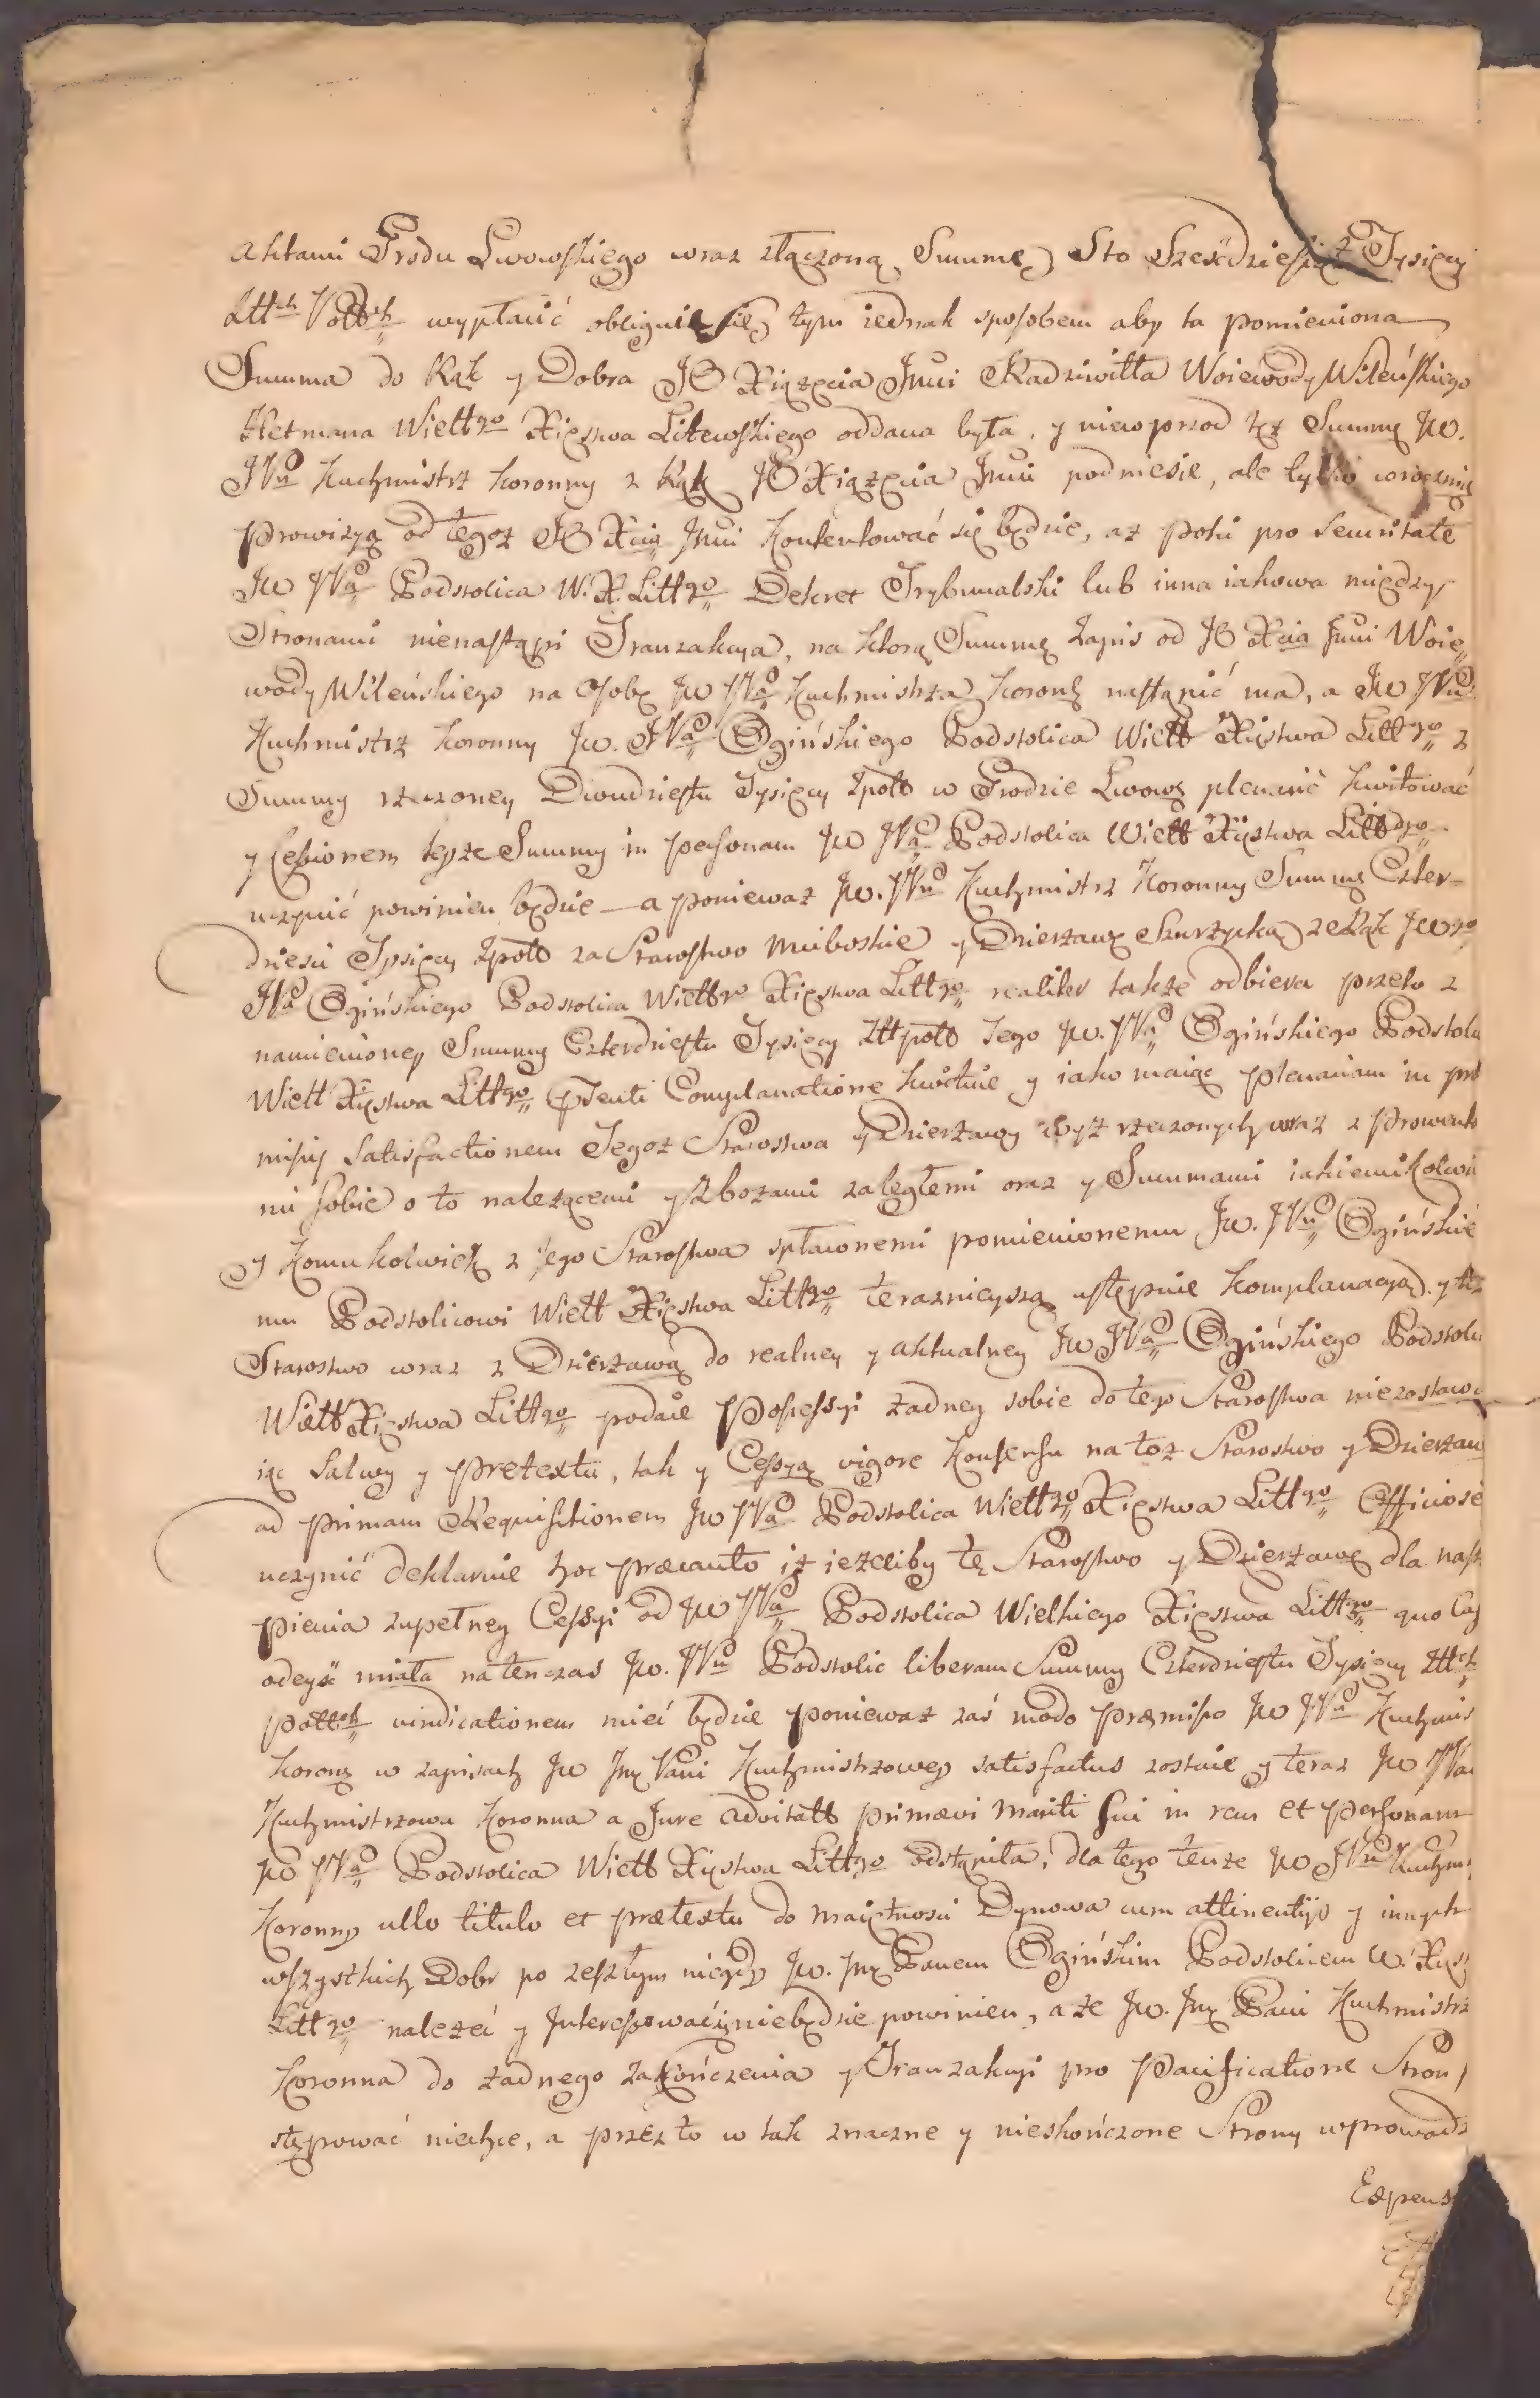 aktami Grodu Lwowskiego wraz złączoną Summę Sto Sześćdziesiąt Tysięcy
Złłch Pollch wypłacić obliguie się, tym iednak sposobem aby ta pomieniona
Summa do Rąk y Dobra JO Xiążęcia Jmći Radziwiłła Woiewody Wileńskiego
Hetmana Wiellgo Xięstwa Litewskiego oddana była, y niewprzod tęż Summę Jw.
JPn Kuchmistrz Koronny z Rąk JO Xiążęcia Jmći podniesie, ale tylko coroczną
prowizyą od tegoż JO Xcia Jmći kontentować się będzie, aż poki pro securitate
Jw JPa Podstolica W. X. Littgo Dekret Trybunalski lub inna iakowa między
Stronami nienastąpi Tranzakcya, na ktorą Summę Zapis od JO Xcia Jmći Woie
wody Wileńskiego na Osobę Jw JPa Kuchmistrza Koronę nastąpić ma, a Jw JPn
Kuchmistrz Koronny Jw. JPa Ogińskiego Podstolica Wiell Xięstwa Littgo z
Summy rzeczoney Dwudziestu Tysięcy Zpoll w Grodzie Lwowę plenarie kwitować
y Cessionem teyże Summy in personam Jw JPa Podstolica Wiell Xięstwa Littgo
uczynić powinien będzie — a ponieważ Jw. JPn Kuchmistrz Koronny Summę Czter-
dzieści Tysięcy Zpoll za Starostwo Mukoskie y Dzierżawę Szurzycką z Rąk Jwgo
JPa Ogińskiego Podstolica Wiellgo Xięstwa Littgo realiter także odbiera przeto z
namienioney Summy Czterdziestu Tysięcy Złłpoll Tego Jw. JPa Ogińskiego Podstoli
Wiell Xięstwa Littgo pnti Complanatione kwituie y iako maiąc plenariam in prę
missis satisfactionem Tegoż Starostwa y Dzierżawy wyż rzeczonych wraz z Prowenta
mi sobie o to należącemi y Zbożami zaległemi oraz y Summami iakiemikolwie
y komukolwiek z tego Starostwa spławonemi pomienionemu Jw. JPu Ogińskie
mu Podstolicowi Wiell Xięstwa Littgo teraznieyszą ustępuie komplanacyą y też
Starostwo wraz z Dzierżawą do realney y aktualney Jw JPa Ogińskiego Podstoli
Wiell Xięstwa Littgo podaie Possessyi żadney sobie do tego Starostwa niezostawu
iąc Salwy y pretextu, tak y Cessyą vigore Konsensu na toż Starostwo y Dzierżaw
ad primam Requisitionem Jw JPa Podstolica Wiellgo Xięstwa Littgo Officiose
uczynić deklaruie hoc præcauto iż ieżeliby tę Starostwo y Dzierżawę dla nastą
pienia zupełney Cessyi od Jw JPa Podstolica Wielkiego Xięstwa Littgo quo Cas
odeyść miała natenczas Jw. JPn Podstolic liberam Summy Czterdziestu Tysięcy Złłch
pollch vindicationem mieć będzie ponieważ zaś modo præmisso Jw JPn Kuchmis
Koronę w zapisach Jw Jmę Pani Kuchmistrzowey satisfactus zostaie y teraz Jw JPani
Kuchmistrzowa Koronna a Jure advitall primævi mariti sui in rem et personam
Jw JPa Podstolica Wiell Xięstwa Littgo odstąpiła, dla tego tenże Jw JPn Kuchm:
Koronny ullo titulo et prætextu do Maiętności Dynowa cum attinentijs y innych
wszystkich Dobr po zeszłym niegdy Jw. Jmę Panem Ogińskim Podstolicem W. Xięs
Littgo należeć y Interessować się niebędzie powinien, a że Jw. Jmę Pani Kuchmistrz
Koronna do żadnego Zakończenia y Tranzakcyi pro Pacificatione Stron
stępować niechce, a przez to w tak znaczne y nieskończone Strony wprowadz
Expens